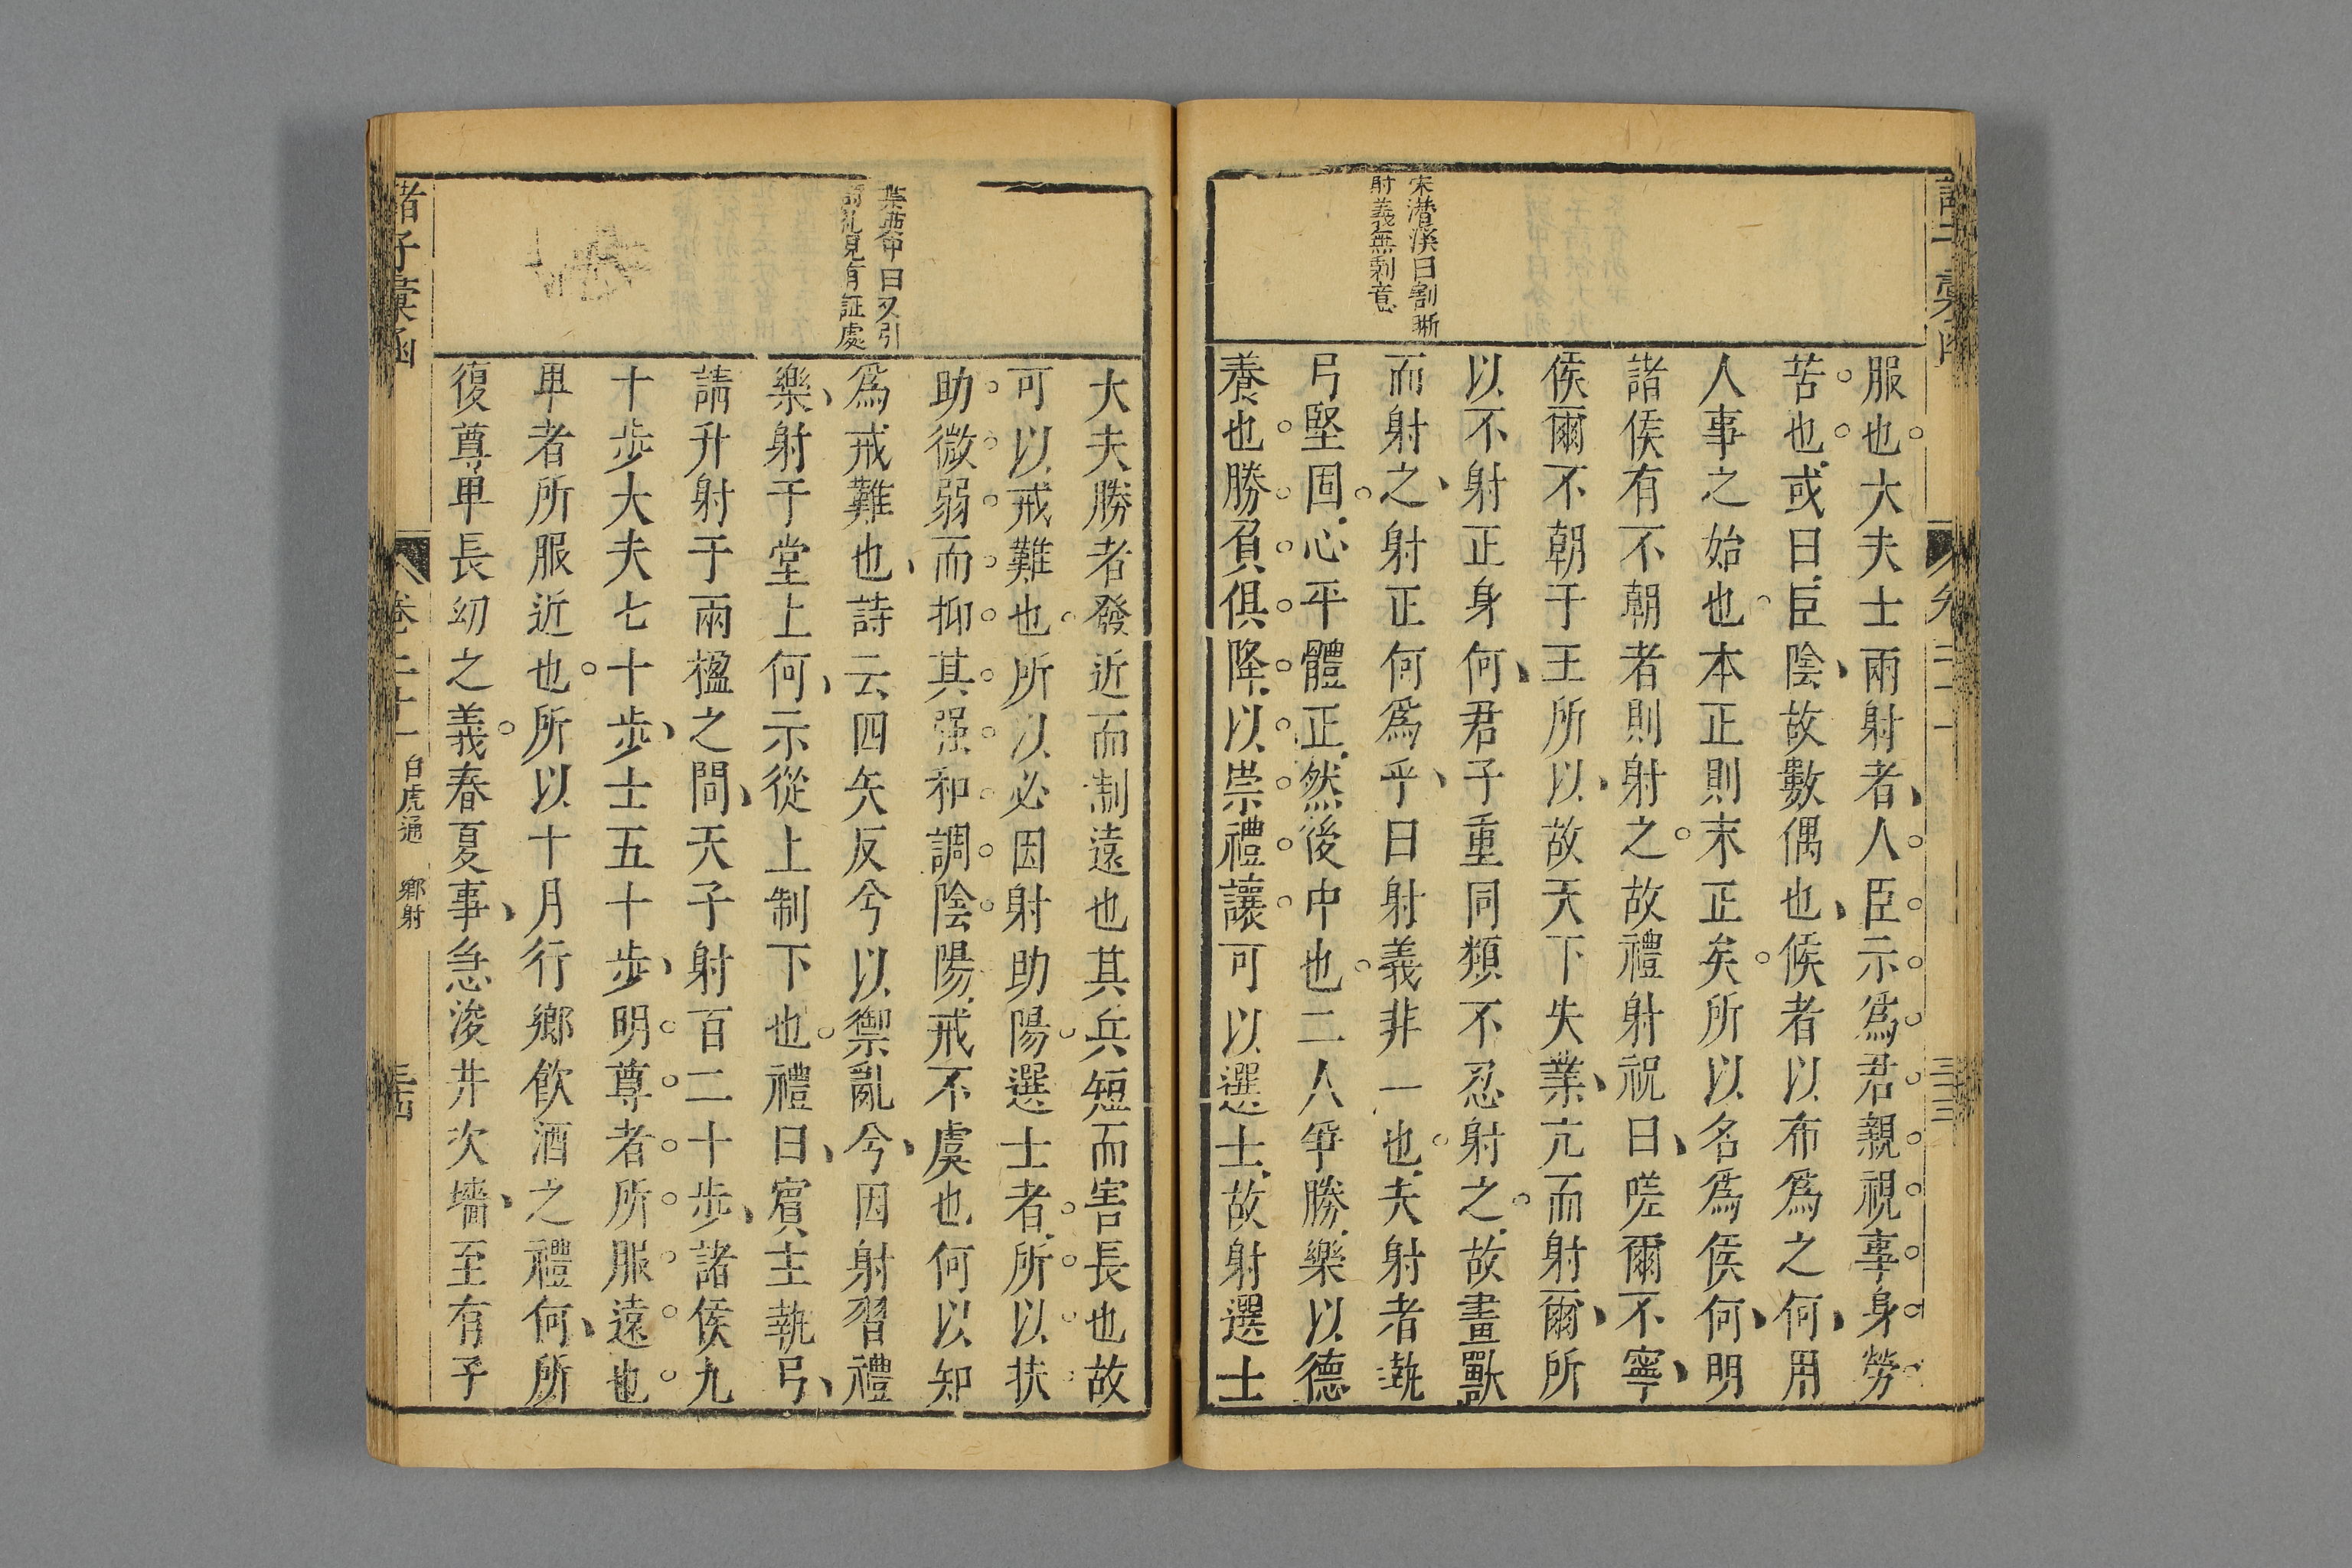 宋潛溪曰割晰
射義無剩意
服也大夫士兩射者人臣示爲君親視事身勞
苦也或曰臣陰故數偶也候者以布爲之何用
人事之始也本正則末正矣所以名爲侯何明
諸侯有不朝者則射之故禮射祝曰嗟爾不寧
侯爾不朝于王所以故天下失業亢而射爾所
以不射正身何君子重同類不忍射之故畫獸
而射之射正何爲乎曰射義非一也夫射者執
弓堅固心平體正然後中也二人爭勝樂以德
養也勝負俱降以崇禮讓可以選士故射選士
葉西𤲞曰又引
詩礼見有証處
大夫勝者發近而制遠也其兵短而害長也故
可以戒難也所以必因射助陽選士者所以扶
助微弱而抑其强和調陰陽戒不虞也何以知
爲戒難也詩云四矢反兮以禦亂兮因射習禮
樂射于堂上何示從上制下也禮曰賓主執弓
請升射于兩楹之間天子射百二十步諸侯九
十步大夫七十步士五十步明尊者所服遠也
卑者所服近也所以十月行鄉飲酒之禮何所
復尊卑長幼之義春夏事急浚井次墻至有子
諸子彙函
卷二十一
白虎通 鄉射
三四